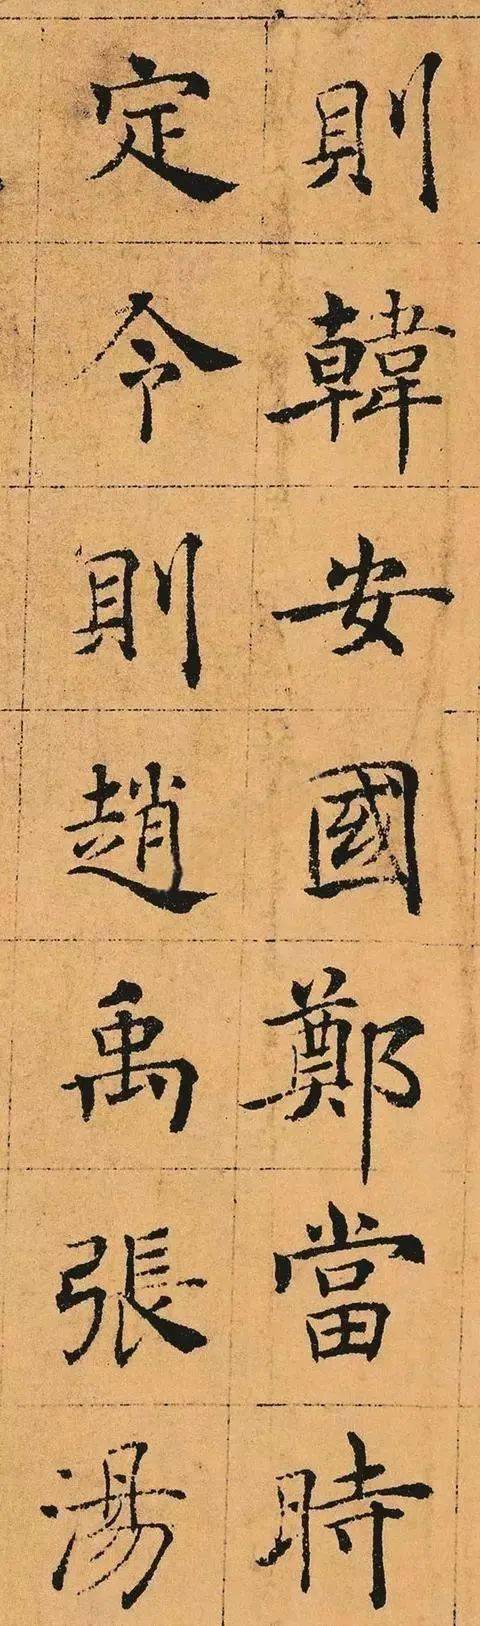 則韓安國鄭當時
定令則趙禹張湯